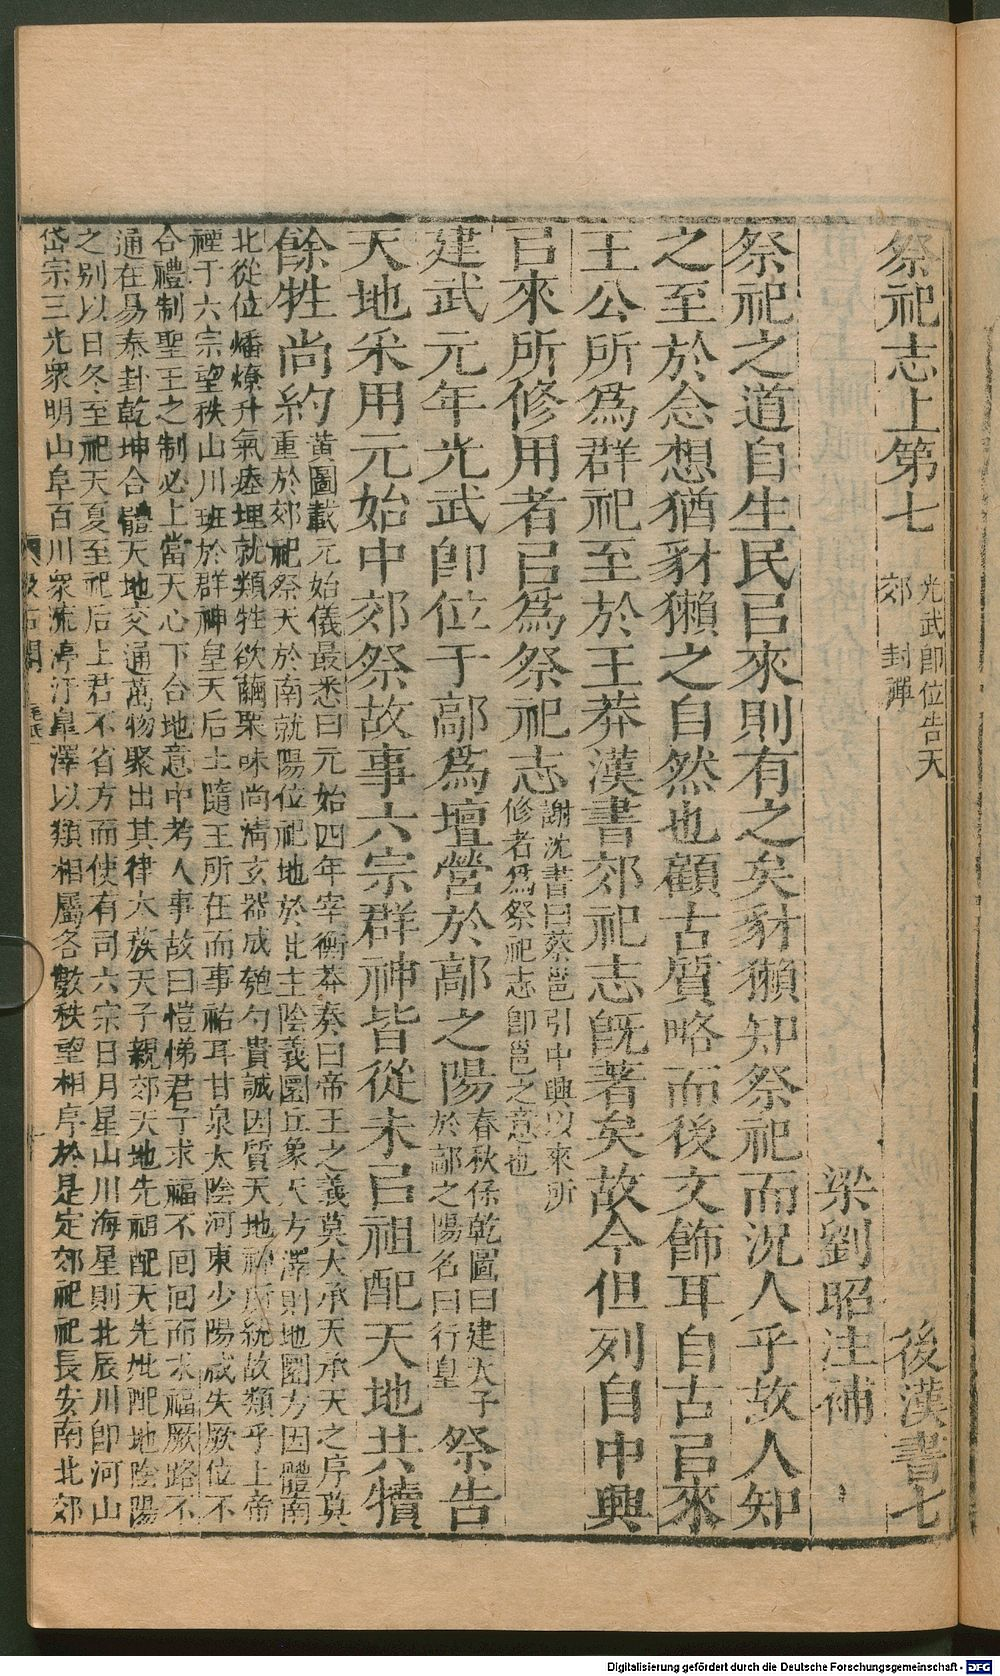 祭祀志上第七　後漢書七
光武即位告天
郊　封禪
梁劉昭注補
祭祀之道自生民已來則有之矣豺獺知祭祀而況人乎故人知
之至於念想猶豺獺之自然也顧古質略而後文飾耳自古已來
王公所爲群祀至於王莽漢書郊祀志旣著矣故今但列自中興
已來所修用者已爲祭祀志
謝沈書曰蔡邕引中興以來所
修者爲祭祀志即邕之意也
建武元年光武即位于鄗爲壇營於鄗之陽
春秋保乾圖曰建天子
於鄗之陽名曰行皇
祭告
天地采用元始中郊祭故事六宗群神皆從未已祖配天地共犢
餘牲尚約
黃圖載元始儀最悉曰元始四年宰衡莽奏曰帝王之義莫大承天承天之序莫
重於郊祀祭天於南就陽位祀地於北主陰義圜丘象天方澤則地圜方因體南
北從位燔燎升氣瘞埋就類牲欲繭栗味尚清玄器成匏勺貴誠因質天地神所統故類乎上帝
禋于六宗望秩山川班於群神皇天后土隨王所在而事祐耳甘泉太陰河東少陽咸失厥位不
合禮制聖王之制必上當天心下合地意中考人事故曰愷悌君子求福不回回而求福厥路不
通在易泰卦乾坤合體天地交通萬物聚出其律太族天子親郊天地先祖配天先妣配地陰陽
之別以日冬至祀天夏至祀后土君不省方而使有司六宗日月星山川海星則北辰川即河山
岱宗三光衆明山阜百川衆流渟汙皐澤以類相屬各數秩望相序於是定郊祀祀長安南北郊
Digitalisierung gefördert durch die Deutsche Forschungsgemeinschaft - DFG